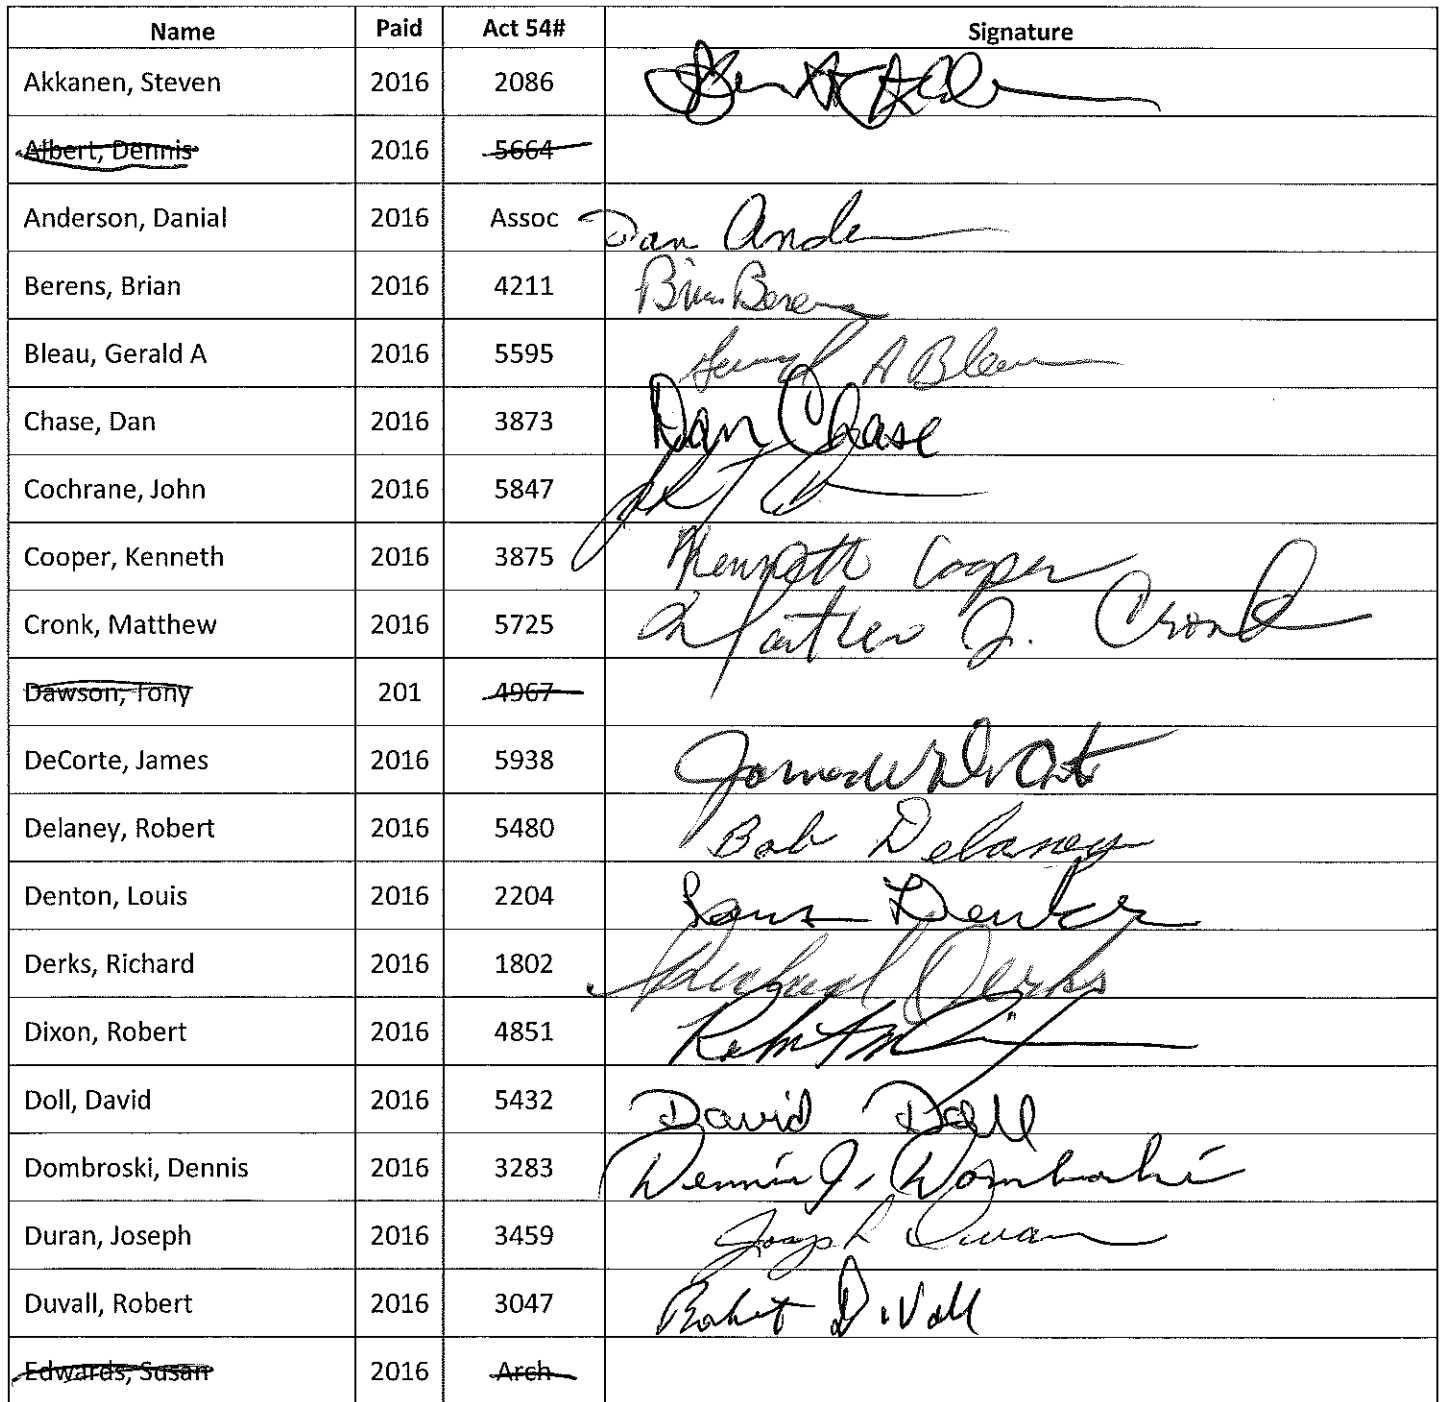 Name Paid Act 54# Signature
Akkanen, Steven 2016 2086
Albert, Dennis 2016 5664
Anderson, Danial 2016 Assoc Dan Ande
Berens, Brian 2016 4211 Brian Berens
Bleau, Gerald A 2016 5595 Gerald A Bleau
Chase, Dan 2016 3873 Dan Chase
Cochrane, John 2016 5847
Cooper, Kenneth 2016 3875 Kenneth Cooper
Cronk, Matthew 2016 5725 Matthew J. Cronk
Dawson, Tony 201 4967
DeCorte, James 2016 5938
Delaney, Robert 2016 5480 Bob Delaney
Denton, Louis 2016 2204 Louis Denton
Derks, Richard 2016 1802 Richard Derks
Dixon, Robert 2016 4851
Doll, David 2016 5432 David Doll
Dombroski, Dennis 2016 3283 Dennis J. Dombroski
Duran, Joseph 2016 3459 Joseph Duran
Duvall, Robert 2016 3047 Robert DuVall
Edwards, Susan 2016 Arch